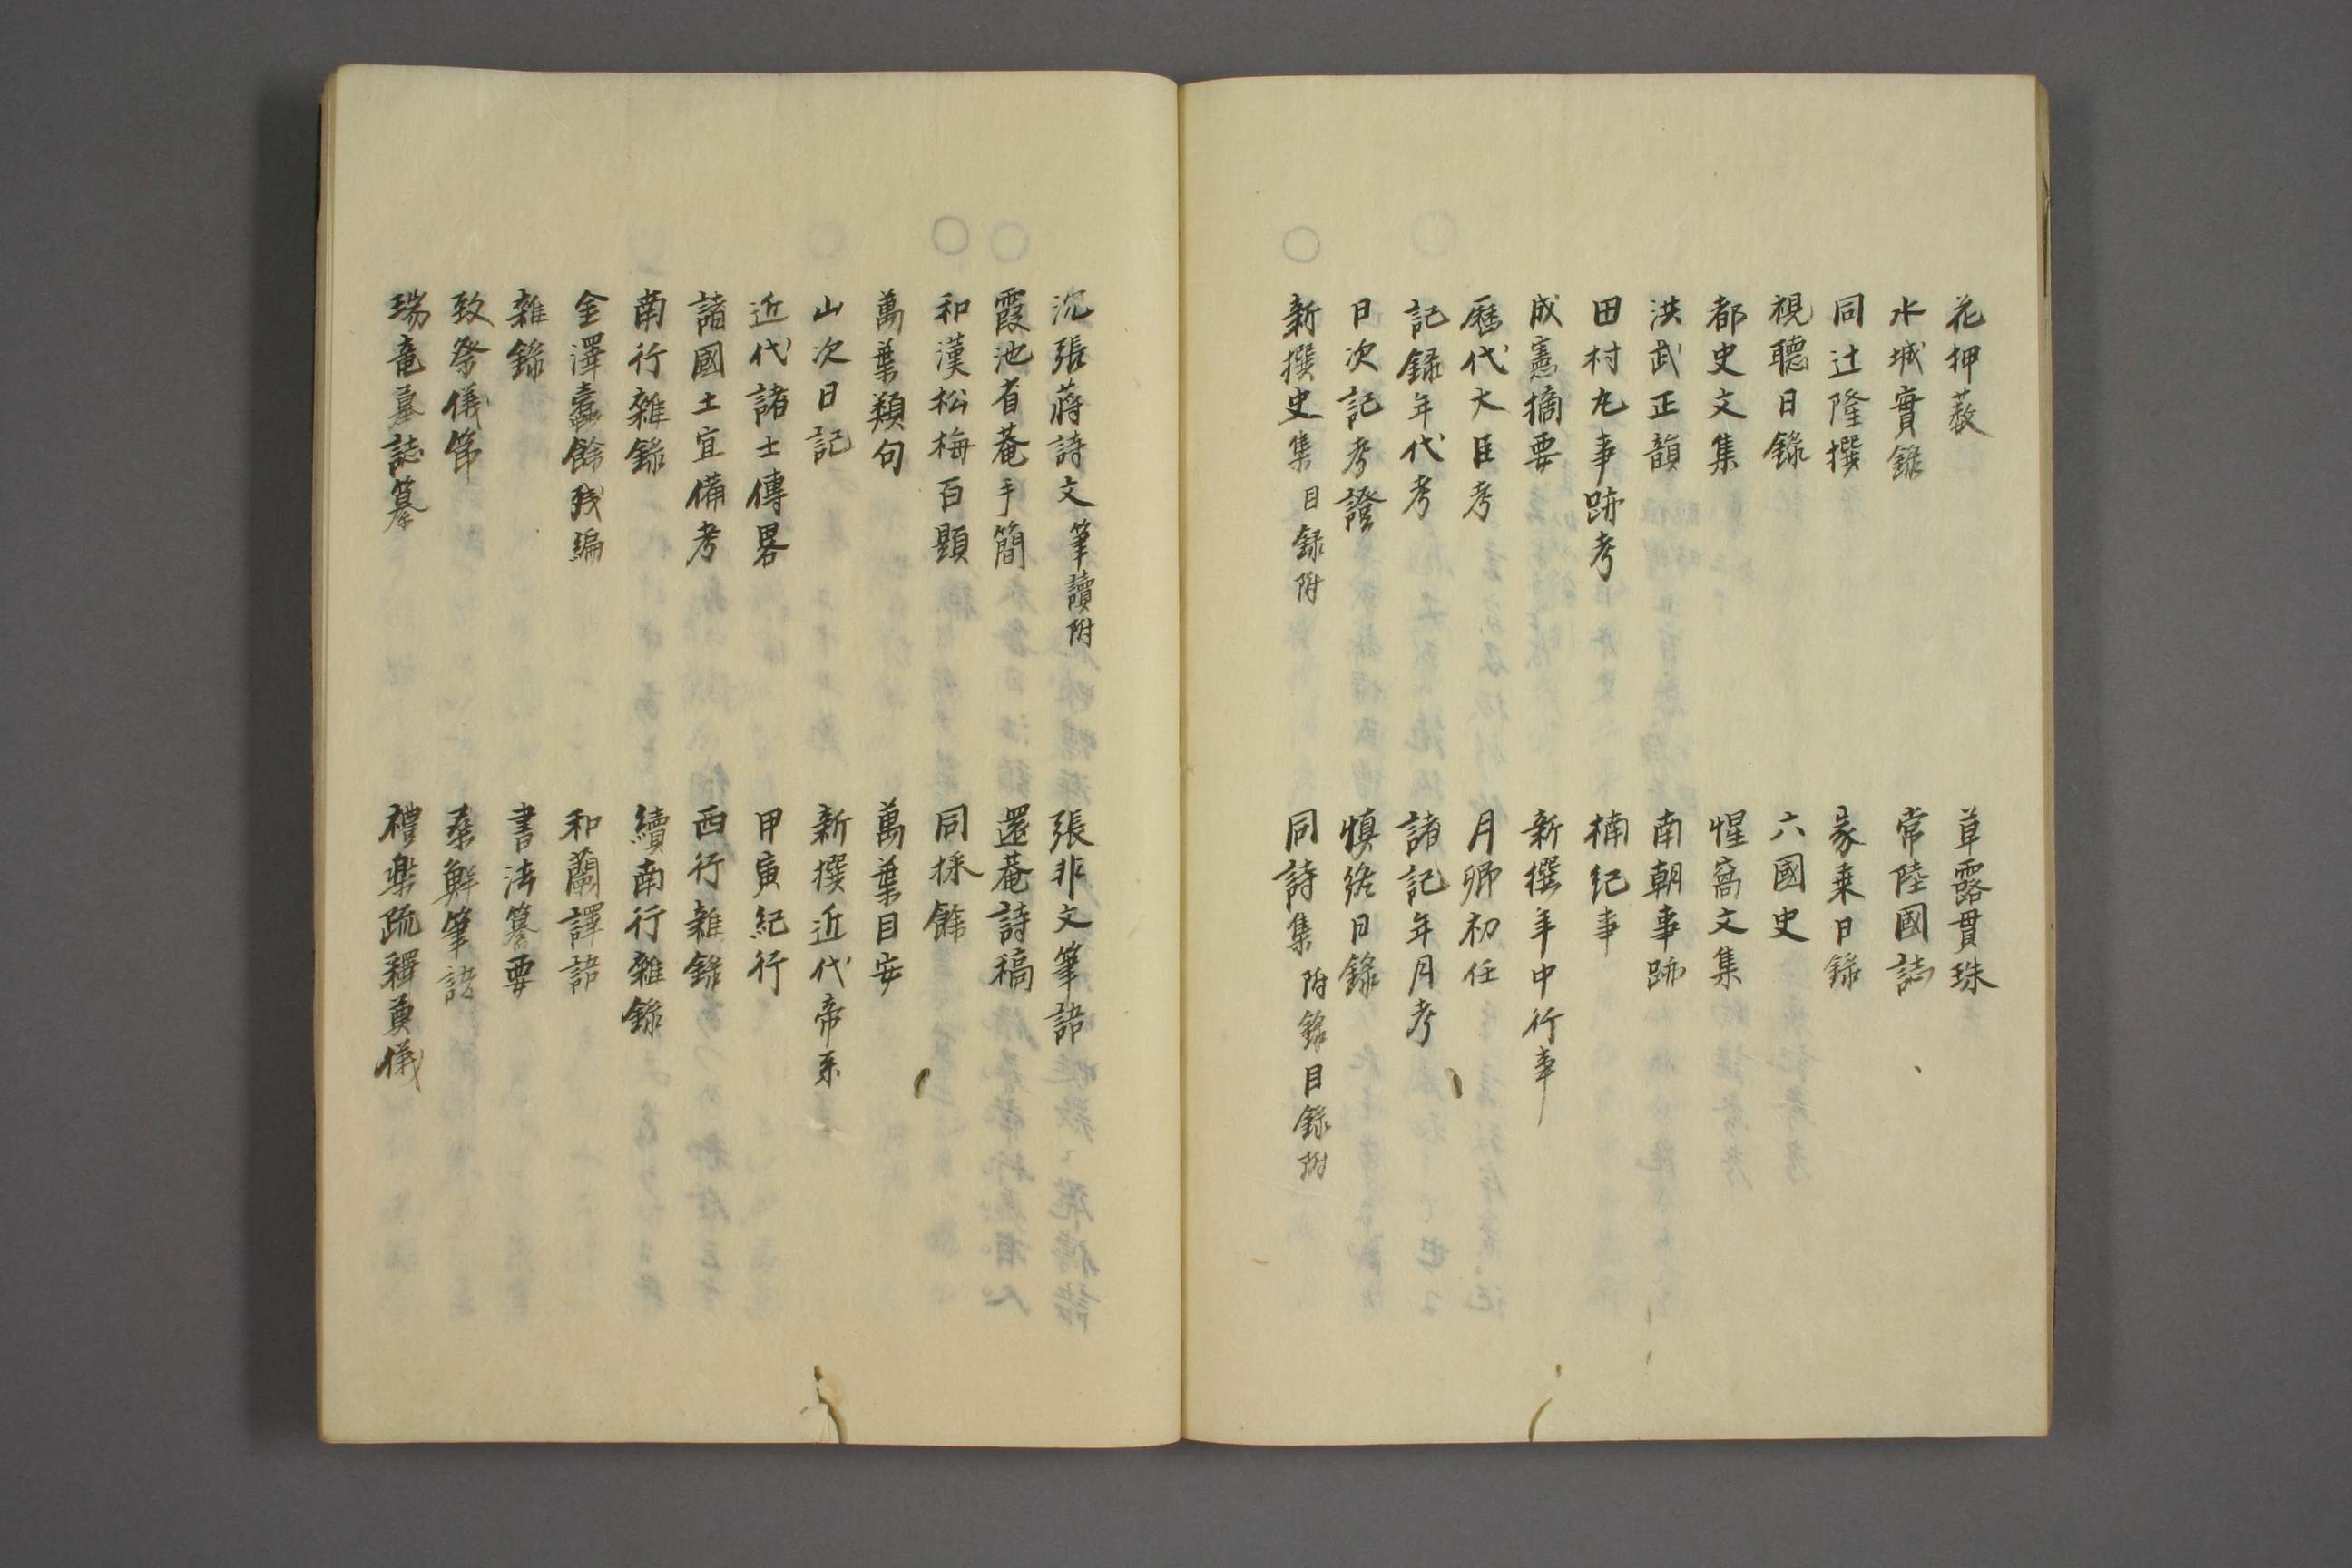 花押薮　草露貫珠
水城實錄　常陸國誌
同辻隆撰　家乗日錄
視聽日錄　六國史
都史文集　惺窩文集
洪武正韻　南朝事跡
田村丸事跡考　楠紀事
成憲摘要　新撰年中行事
歴代大臣考　月卿初任
記録年代考　諸記年月考
日次記考證　慎終日錄
新撰史集 目録附　同詩集 附錄目録附
沉張蒋詩文 筆讀附　張非文筆語
霞池省菴手簡　還菴詩稿
和漢松梅百題　同採餘
萬葉類句　萬葉目安
山次日記　新撰近代帝系
近代諸士傳畧　甲寅紀行
諸國土宜備考　西行雜錄
南行雜錄　續南行雜錄
金澤蠹餘残編　和蘭譯語
雜錄　書法纂要
致祭儀節　桑鮮筆語
瑞竜墓誌纂　禮樂疏釋奠儀